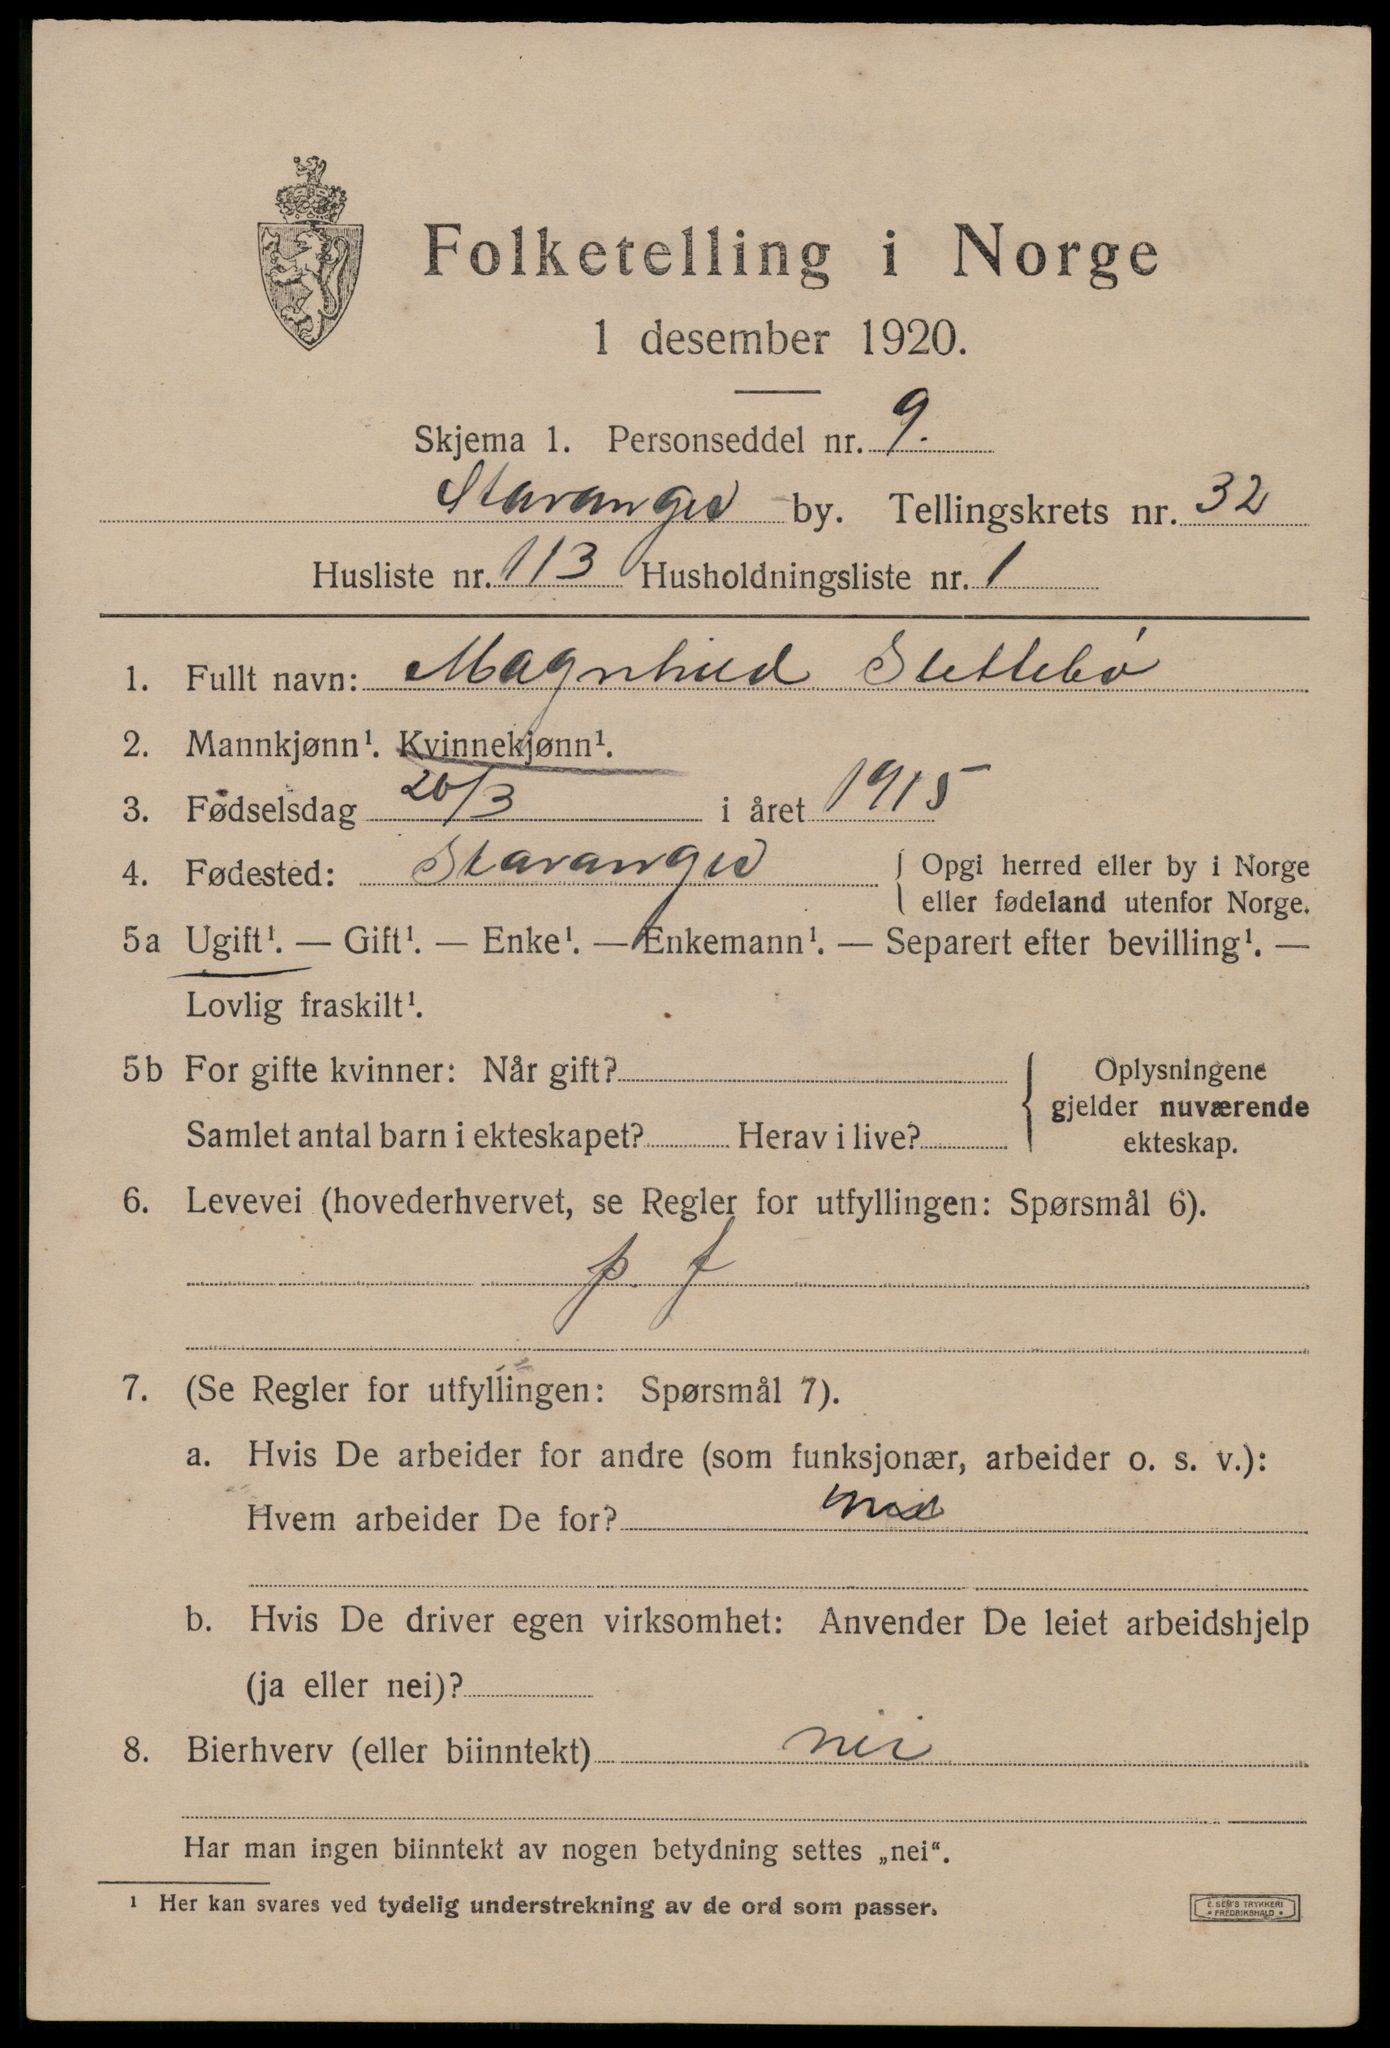 Folketelling i Norge
1 desember 1920.
Skjema 1. Personseddel nr. 9.
Stavanger by. Tellingskrets nr. 32
Husliste nr. 113 Husholdningsliste nr. 1
1. Fullt navn: Magnhild Slettebó
2. Mannkjønn¹. Kvinnekjønn¹.
3. Fødselsdag 20/3 i året 1915
4. Fødested: Stavanger { Opgi herred eller by i Norge
eller fødeland utenfor Norge.
5a Ugift¹. — Gift¹. — Enke¹. — Enkemann¹. — Separert efter bevilling¹. —
Lovlig fraskilt¹.
5b For gifte kvinner: Når gift? { Oplysningene
gjelder nuværende
Samlet antal barn i ekteskapet? Herav i live? ekteskap.
6. Levevei (hovederhvervet, se Regler for utfyllingen: Spørsmål 6).
p. f
7. (Se Regler for utfyllingen: Spørsmål 7).
a. Hvis De arbeider for andre (som funksjonær, arbeider o. s. v.):
Hvem arbeider De for?
b. Hvis De driver egen virksomhet: Anvender De leiet arbeidshjelp
(ja eller nei)?
8. Bierhverv (eller biinntekt) nei
Har man ingen biinntekt av nogen betydning settes „nei“.
¹ Her kan svares ved tydelig understrekning av de ord som passer.
E. SEM'S TRYKKERI
• FREDRIKSHALD •